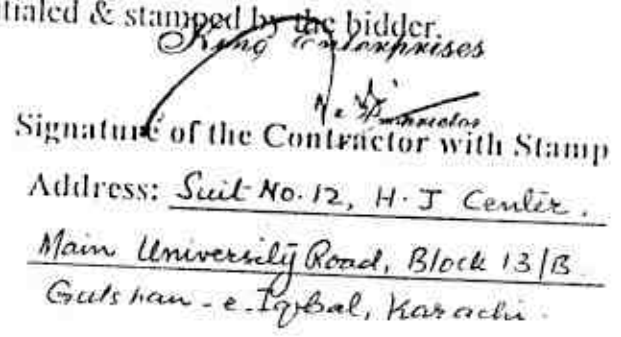 tialed & stamped by the bidder.
King Enterprises
Signature of the Contractor with Stamp
Address: Suit No. 12, H. J Center.
Main University Road, Block 13/B
Gulshan-e-Iqbal, Karachi.